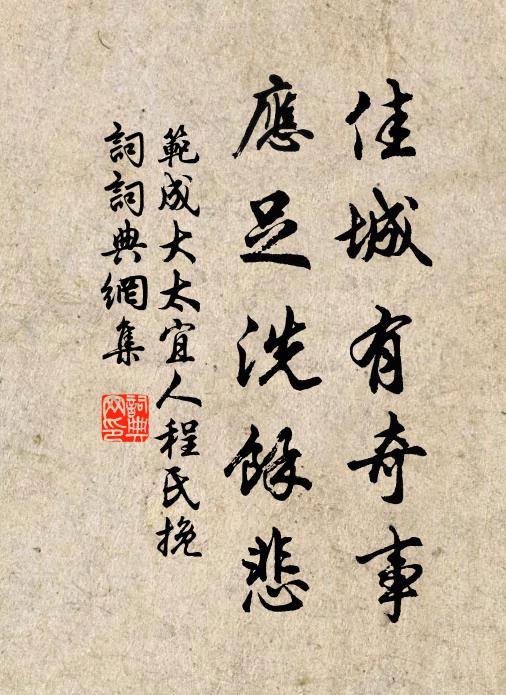 佳城有奇事
應足洗餘悲
範成大太宜人程氏挽
詞詞典網集
詞典網印